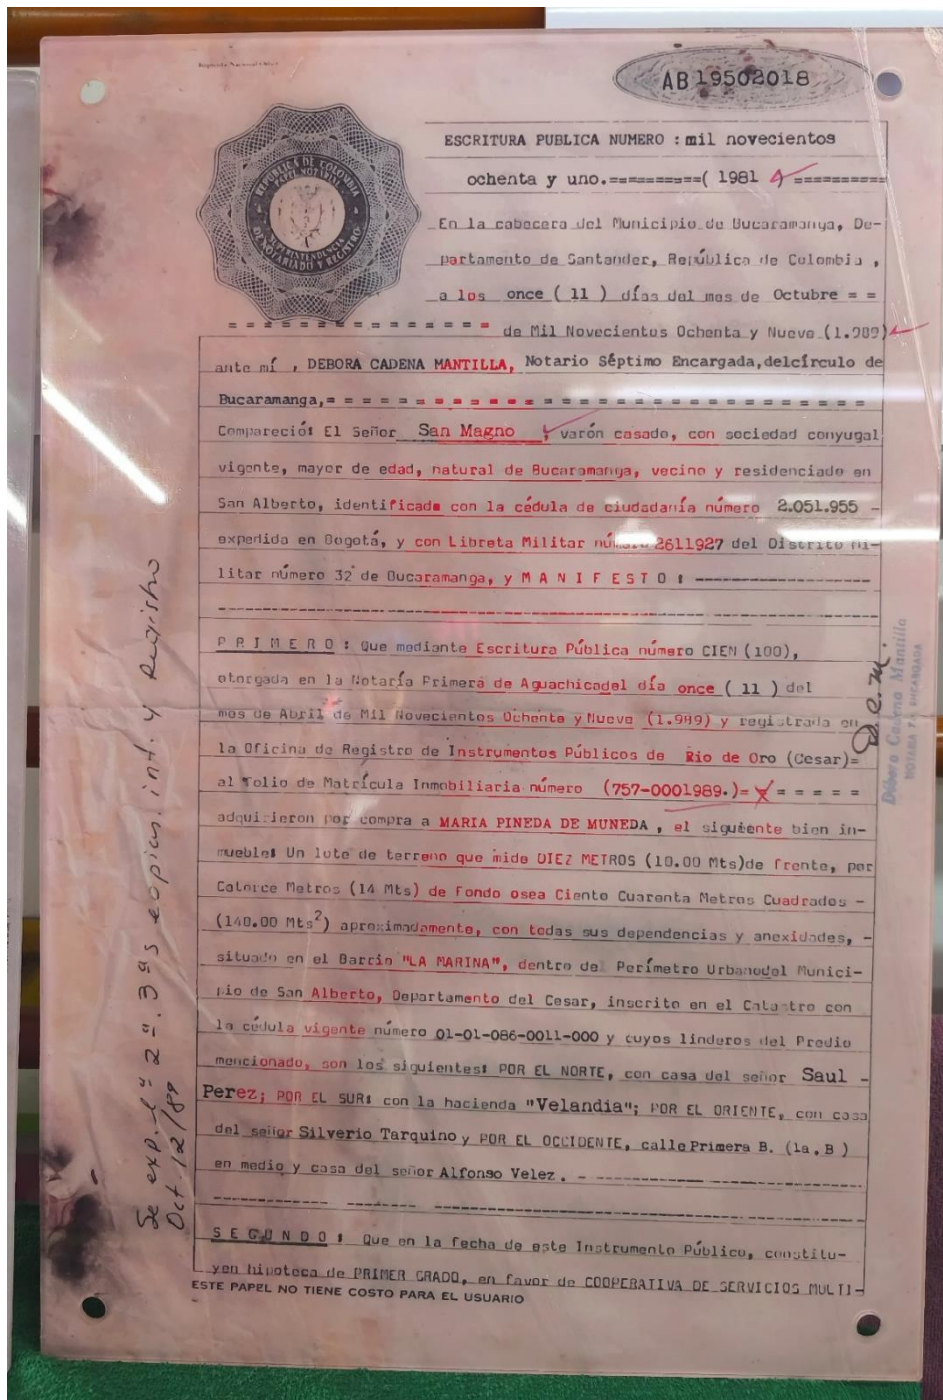 AB 19502018
REPUBLICA DE COLOMBIA
PAPEL NOTARIAL
SUPERINTENDENCIA
DE NOTARIADO Y REGISTRO
ESCRITURA PUBLICA NUMERO : mil novecientos
ochenta y uno.==========( 1981 ) ==========
En la cabecera del Municipio de Bucaramanga, De-
partamento de Santander, República de Colombia ,
a los once ( 11 ) días del mes de Octubre = =
= = = = = = = = = = = = = = = = de Mil Novecientos Ochenta y Nueve (1.989)
ante mí , DEBORA CADENA MANTILLA, Notario Séptimo Encargada, delcírculo de
Bucaramanga,= = = = = = = = = = = = = = = = = = = = = = = = = = = = = = = =
Compareció: El Señor San Magno , varón casado, con sociedad conyugal
vigente, mayor de edad, natural de Bucaramanga, vecino y residenciado en
San Alberto, identificado con la cédula de ciudadanía número 2.051.955 -
expedida en Bogotá, y con Libreta Militar número 2611927 del Distrito Mi-
litar número 32 de Bucaramanga, y M A N I F E S T O : -----------------
P R I M E R O : Que mediante Escritura Pública número CIEN (100),
otorgada en la Notaría Primera de Aguachicadel día once ( 11 ) del
mes de Abril de Mil Novecientos Ochenta y Nueve (1.989) y registrada en
la Oficina de Registro de Instrumentos Públicos de Rio de Oro (Cesar)=
al folio de Matrícula Inmobiliaria número (757-0001989.)= = = = = =
adquirieron por compra a MARIA PINEDA DE MUNEDA , el siguiente bien in-
mueble: Un lote de terreno que mide DIEZ METROS (10.00 Mts)de frente, por
Catorce Metros (14 Mts) de Fondo osea Ciento Cuarenta Metros Cuadrados -
(140.00 Mts2) aproximadamente, con todas sus dependencias y anexidades, -
situado en el Barrio "LA MARINA", dentro del Perímetro Urbanodel Munici-
pio de San Alberto, Departamento del Cesar, inscrito en el Catastro con
la cédula vigente número 01-01-086-0011-000 y cuyos linderos del Predio
mencionado, son los siguientes: POR EL NORTE, con casa del señor Saul -
Perez; POR EL SUR: con la hacienda "Velandia"; POR EL ORIENTE, con casa
del señor Silverio Tarquino y POR EL OCCIDENTE, calle Primera B. (1a. B )
en medio y casa del señor Alfonso Velez. - --------------------------
S E G U N D O : Que en la fecha de este Instrumento Público, constitu-
yen hipoteca de PRIMER GRADO, en favor de COOPERATIVA DE SERVICIOS MULTI-
ESTE PAPEL NO TIENE COSTO PARA EL USUARIO
Se exp. 1ª 2ª. 3ªs copias. int. y Registro
Oct. 12/89
Débora Cadena Mantilla
NOTARIA 7a. ENCARGADA